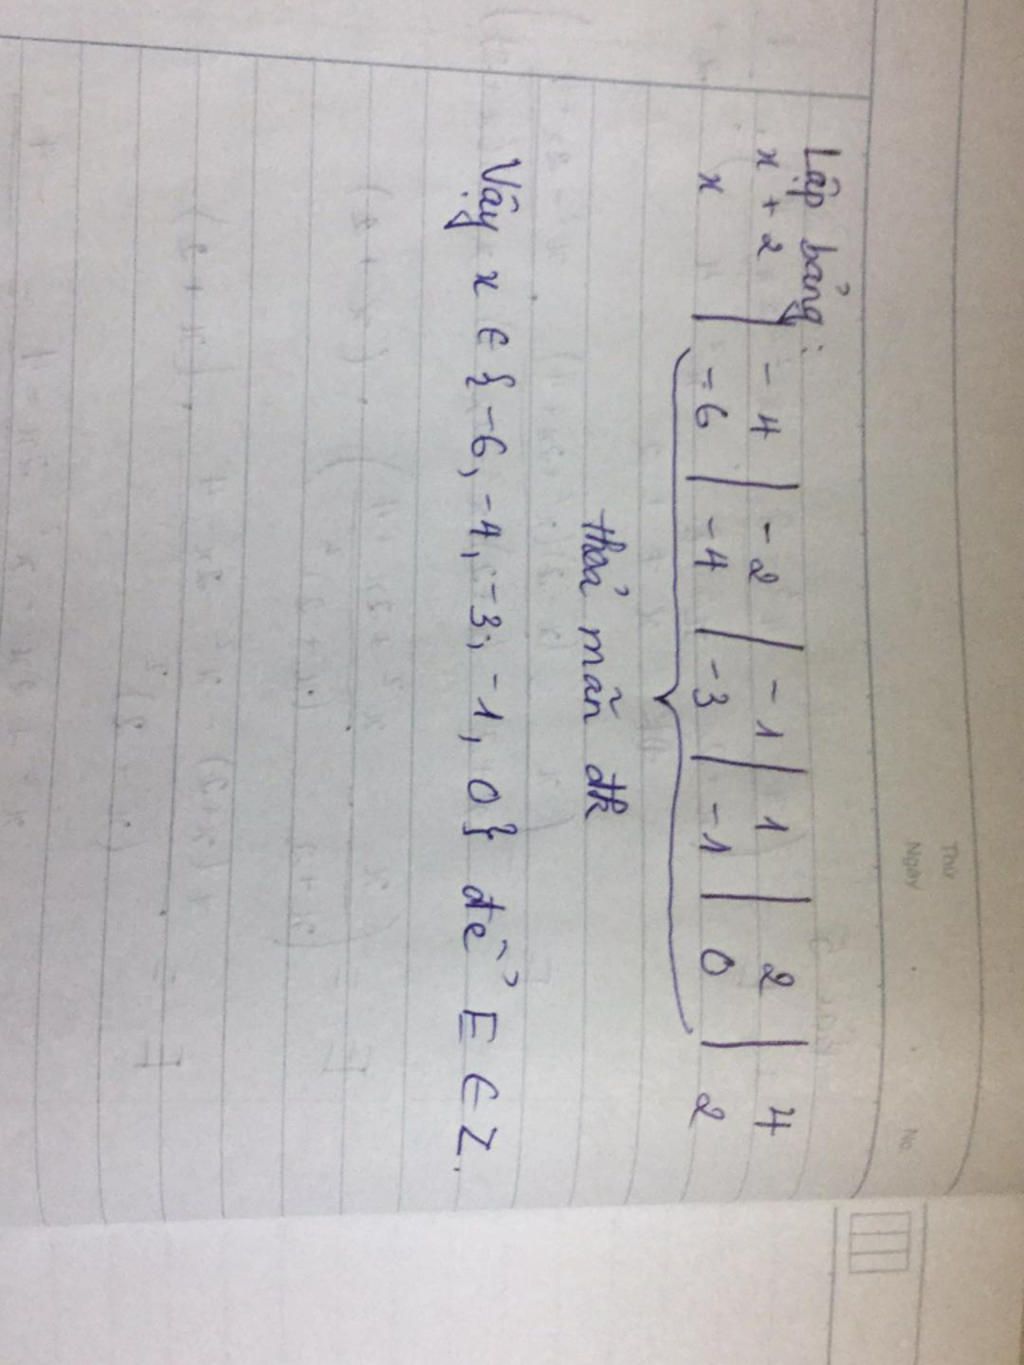 Thứ
Ngày No.
Lập bảng:
x + 2 | -4 | -2 | -1 | 1 | 2 | 4
x | -6 | -4 | -3 | -1 | 0 | 2
thoả mãn đk
Vậy x ∈ {-6, -4, -3; -1, 0} để E ∈ Z.